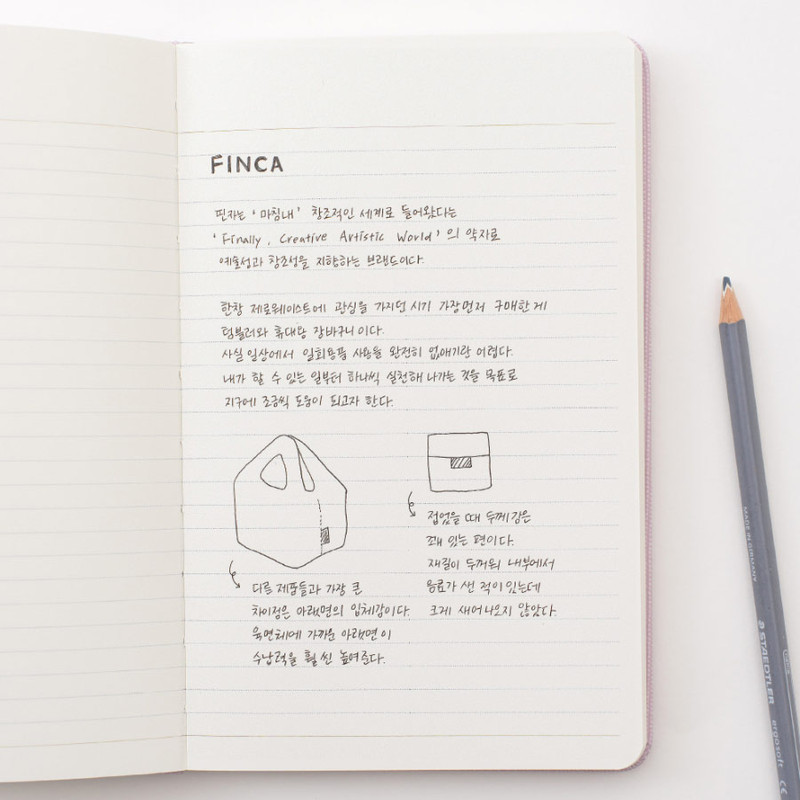 FINCA
핀카는 '마침내' 창조적인 세계로 들어왔다는
'Finally, Creative Artistic World'의 약자로
예술성과 창조성을 지향하는 브랜드이다.
한창 제로웨이스트에 관심을 가지던 시기 가장 먼저 구매한 게
텀블러와 휴대용 장바구니이다.
사실 일상에서 일회용품 사용을 완전히 없애기란 어렵다.
내가 할 수 있는 일부터 하나씩 실천해 나가는 것을 목표로
지구에 조금씩 도움이 되고자 한다.
다른 제품들과 가장 큰
차이점은 아랫면의 입체감이다.
육면체에 가까운 아랫면이
수납력을 훨씬 높여준다.
접었을 때 두께감은
꽤 있는 편이다.
재질이 두꺼워 내부에서
음료가 샌 적이 있는데
크게 새어나오지 않았다.
MADE IN GERMANY
STAEDTLER
ergosoft
CE